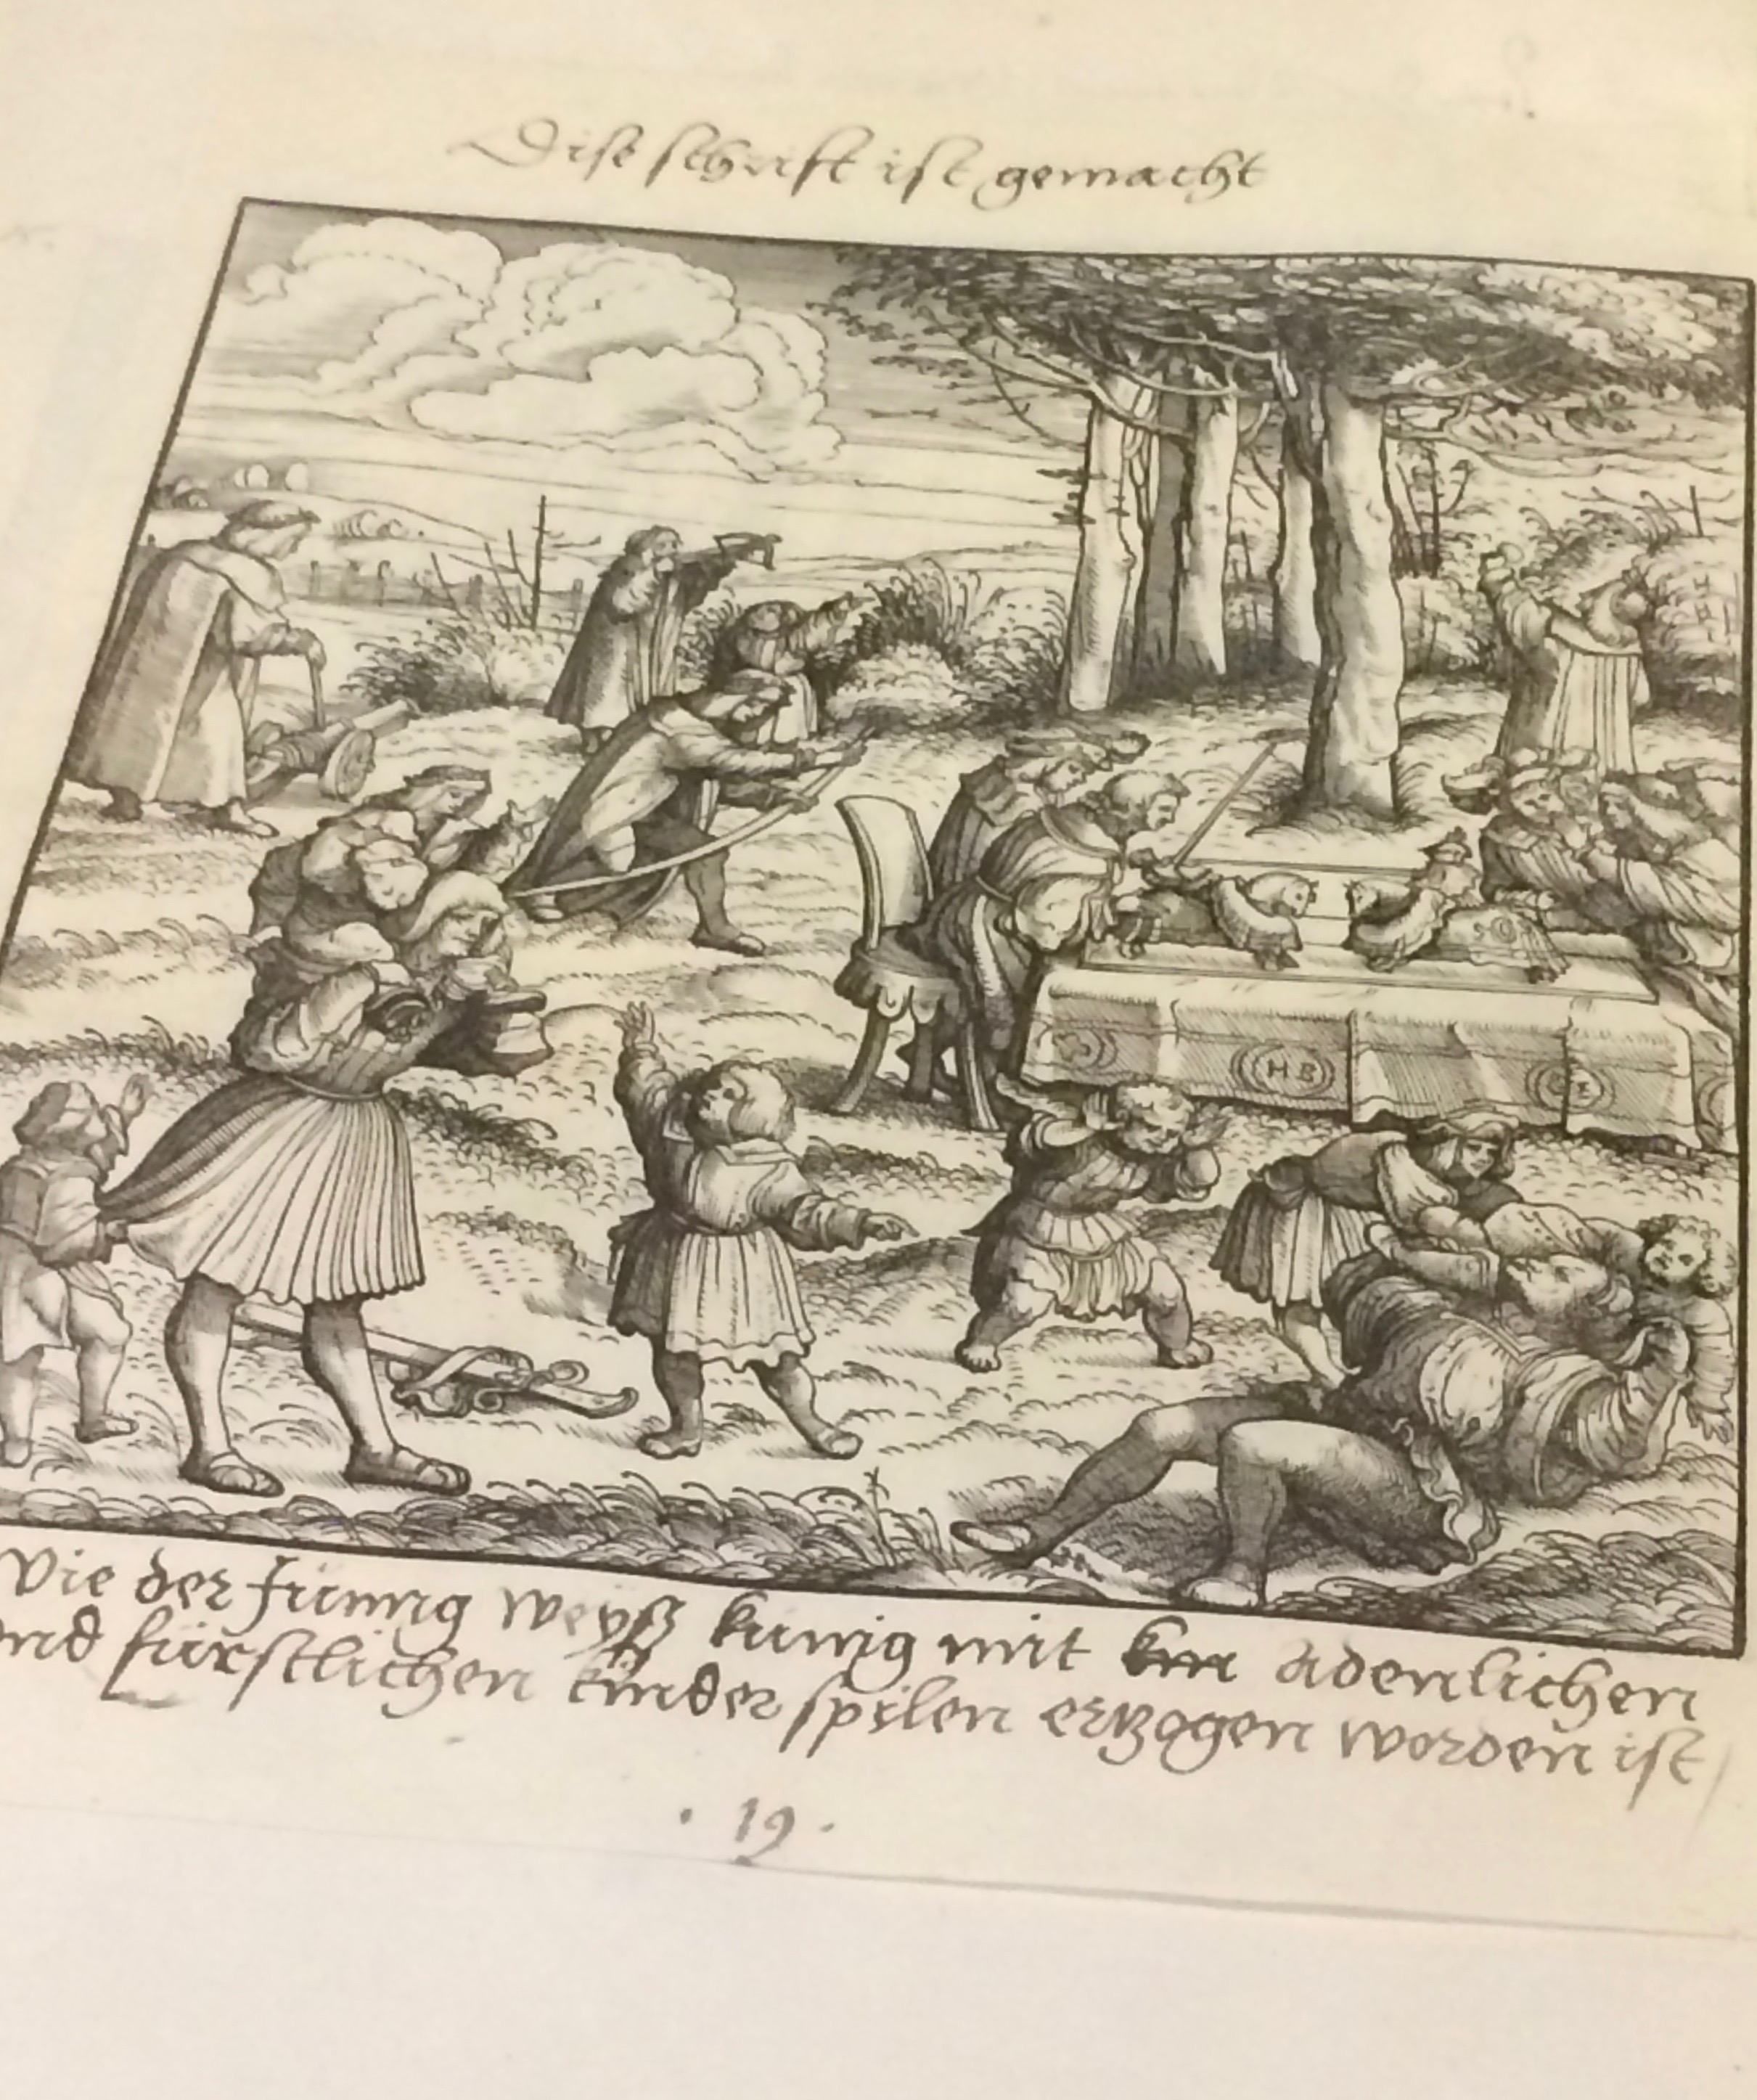 Dise schrift ist gemacht
H B
Wie der Jung weyß kunig mit adenlichen
vnd fürstlichen kinder spilen erzogen worden ist
. 19 .